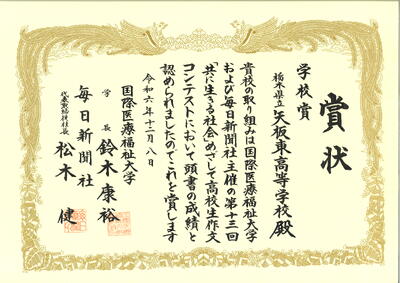 賞状
学校賞
栃木県立矢板東高等学校殿
貴校の取り組みは国際医療福祉大学
および毎日新聞社主催の第十三回
「共に生きる社会」めざして高校生作文
コンテストにおいて頭書の成績と
認められましたのでこれを賞します
令和六年十二月八日
国際医療福祉大学
学長 鈴木康裕
毎日新聞社
代表取締役社長 松木健